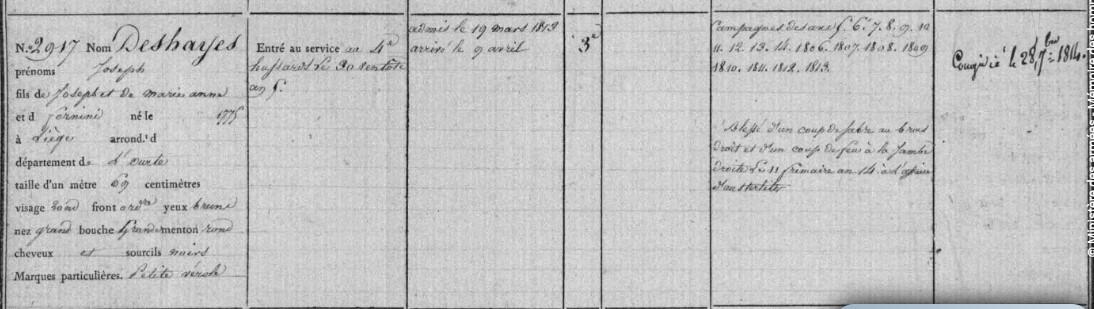 N.º 2917 Nom Deshayes
prénoms Joseph
fils de Joseph et de marie anne
et d né le 1775
à Liège arrond.t d
département de L'ourte
taille d'un mètre 69 centimètres
visage rond front ordre yeux bruns
nez grand bouche Grande menton rond
cheveux et sourcils noirs
Marques particulières. Petite vérole
Entré au service au 4e
hussards Le 30
an 5.
admis le 19 mars 1813
arrivé le 9 avril
3e
Campagnes des ans 5. 6. 7. 8. 9. 10
11. 12. 13. 14. 1806. 1807. 1808. 1809
1810. 1811. 1812. 1813.
Blessé d'un coup de sabre au bras
droit et d'un coup de feu à la Jambe
droite Le 11 frimaire an 14. à l'affaire
d'austerlitz
Congédié le 28 7bre 1814.
© Ministère des armées - Mémoire des hommes